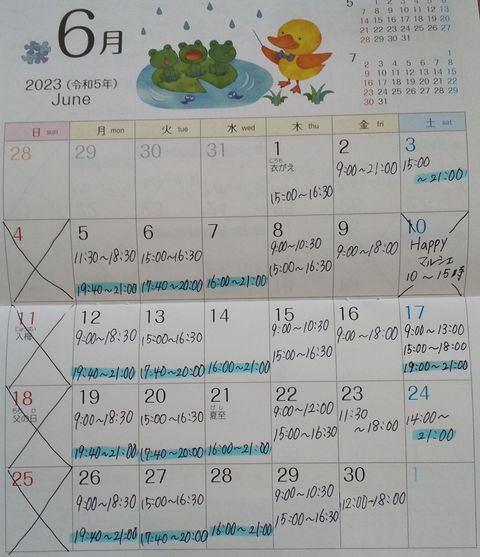 6月
2023（令和5年）
June
5
7 14 21 28
8 15 22 29
9 16 23 30
10 17 24 31
7
1
2 3 4 5 6 7 8
9 10 11 12 13 14 15
16 17 18 19 20 21 22
23 24 25 26 27 28 29
30 31
日 sun 月 mon 火 tue 水 wed 木 thu 金 fri 土 sat
28 29 30 31 1 2 3
ころも
衣がえ
15:00～16:30
9:00～21:00
15:00
～21:00
4 5 6 7 8 9 10
11:30～18:30
19:40～21:00
15:00～16:30
17:40～20:00
16:00～21:00
9:00～10:30
15:00～16:30
9:00～18:00
Happy
マルシェ
10～15時
11 12 13 14 15 16 17
入梅
9:00～18:30
19:40～21:00
15:00～16:30
17:40～20:00
16:00～21:00
9:00～10:30
15:00～16:30
9:00～18:00
9:00～13:00
15:00～18:00
19:00～21:00
18 19 20 21 22 23 24
父の日
9:00～18:30
19:40～21:00
15:00～16:30
17:40～20:00
げし
夏至
16:00～21:00
9:00～12:00
15:00～16:30
11:30
～18:00
14:00～
21:00
25 26 27 28 29 30 1
9:00～18:30
19:40～21:00
15:00～16:30
17:40～20:00
16:00～21:00
9:00～10:30
15:00～16:30
12:00～18:00